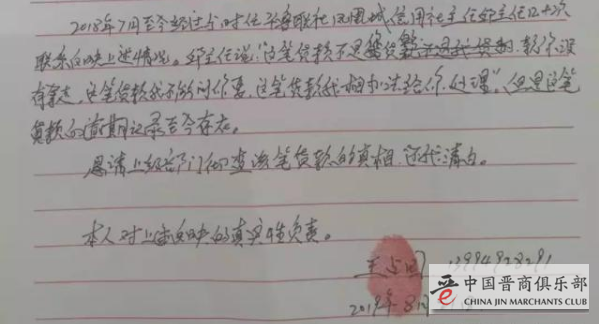 2018年7月至今经过与时任 联社凤凰城信用社主任 主任 次
联系反映上述情况。 主任说:“这笔贷款不是你贷 款你没
有拿走,这笔贷款我不能问你要,这笔贷款我想办法给你处理”。但是这笔
贷款的逾期记录至今存在。
恳请上级部门彻查该笔贷款的真相,还我清白。
本人对上述反映的真实性负责。
王占国 13994928291
2019年8月
中国晋商俱乐部
CHINA JIN MARCHANTS CLUB